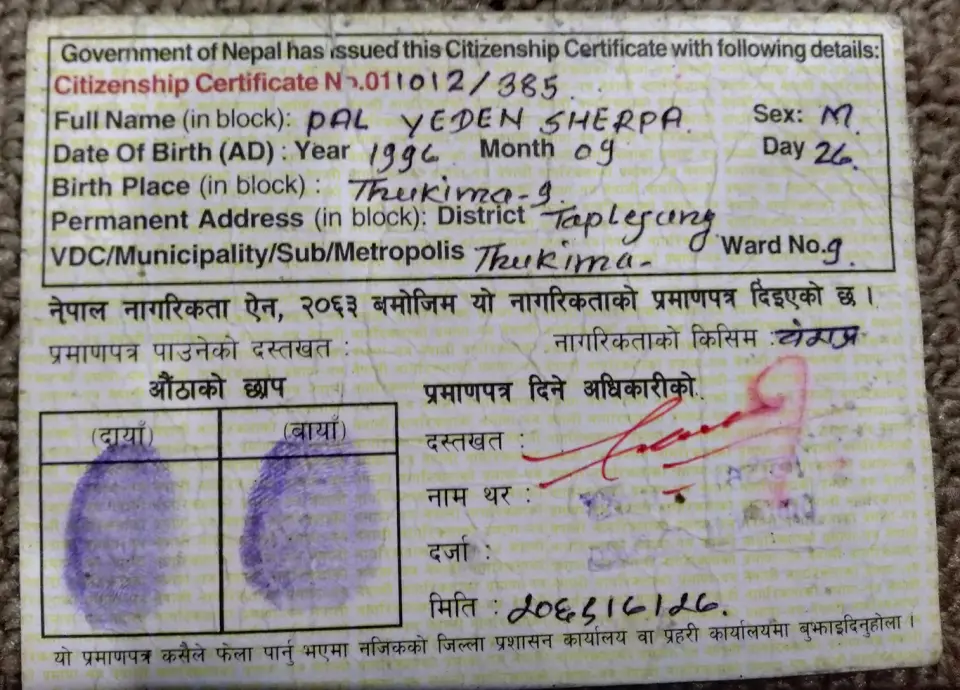 Government of Nepal has issued this Citizenship Certificate with following details:
Citizenship Certificate No.011012/385
Full Name (in block): PAL YEDEN SHERPA. Sex: M.
Date Of Birth (AD) : Year 1996 Month 09 Day 26.
Birth Place (in block) : Thukima-9.
Permanent Address (in block): District Taplejung
VDC/Municipality/Sub/Metropolis Thukima- Ward No.9.
नेपाल नागरिकता ऐन, २०६३ बमोजिम यो नागरिकताको प्रमाणपत्र दिइएको छ ।
प्रमाणपत्र पाउनेको दस्तखत : नागरिकताको किसिम : वंशज
औंठाको छाप प्रमाणपत्र दिने अधिकारीको..
(दायाँ) (बायाँ) दस्तखत :
नाम थर :
दर्जा :
मिति :
यो प्रमाणपत्र कसैले फेला पार्नु भएमा नजिकको जिल्ला प्रशासन कार्यालय वा प्रहरी कार्यालयमा बुझाइदिनुहोला ।